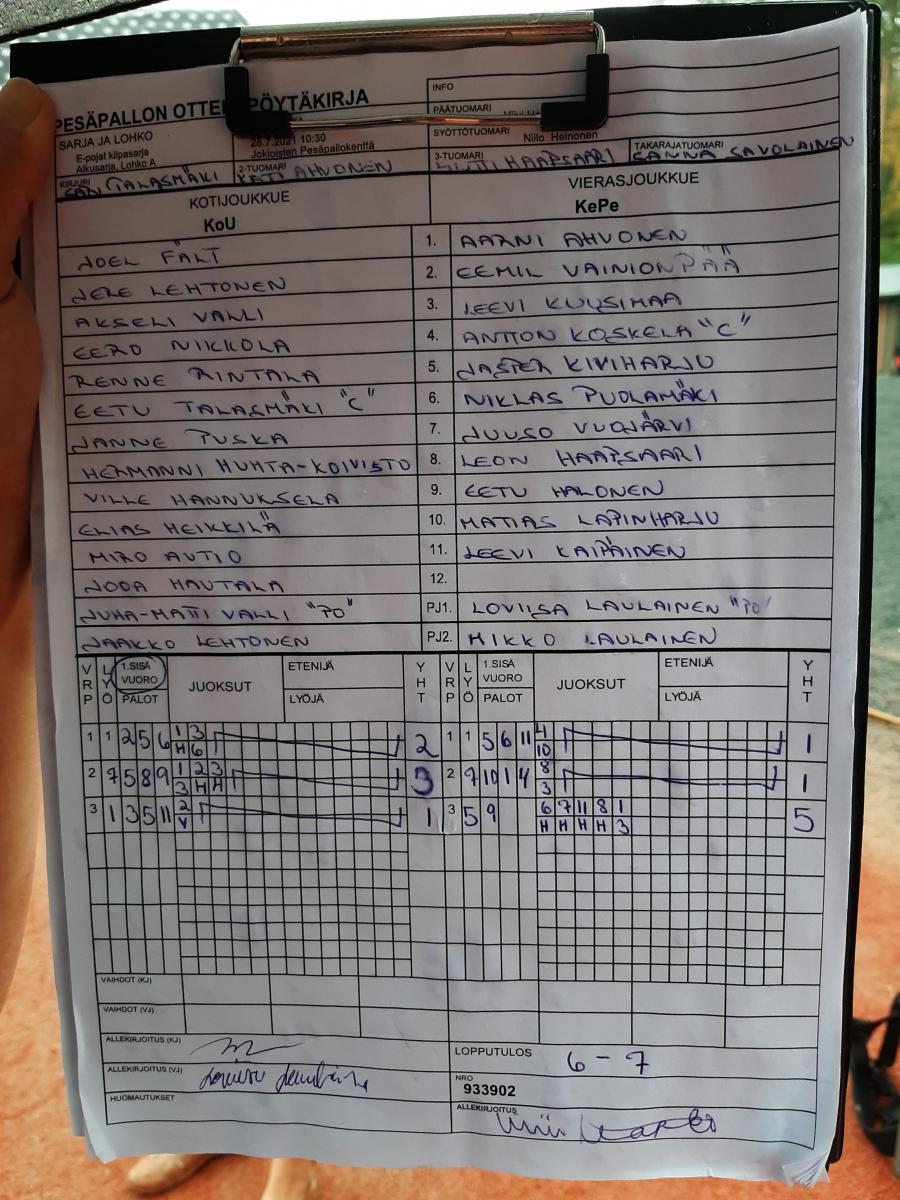 PESÄPALLON OTTE PÖYTÄKIRJA
INFO
PÄÄTUOMARI
SARJA JA LOHKO
E-pojat kilpasarja
Alkusarja, Lohko A
28.7.2021 10:30
Jokioisten Pesäpallokenttä
SYÖTTÖTUOMARI
Niilo Heinonen
KIRJURI
TALASMÄKI
2-TUOMARI
AHVONEN
3-TUOMARI
HAAPSAARI
TAKARAJATUOMARI
SANNA SAVOLAINEN
KOTIJOUKKUE
KoU
VIERASJOUKKUE
KePe
JOEL FÄLT 1. AARNI AHVONEN
JERE LEHTONEN 2. EEMIL VAINIONPÄÄ
AKSELI VALLI 3. LEEVI KUUSIMAA
EERO NIKKOLA 4. ANTTON KOSKELA "C"
RENNE RINTALA 5. JASPER KIVIHARJU
EETU TALASMÄKI "C" 6. NIKLAS PUOLAMÄKI
JANNE PUSKA 7. JUUSO VUOJÄRVI
HERMANNI HUHTA-KOIVISTO 8. LEON HAAPSAARI
VILLE HANNUKSELA 9. EETU HALONEN
ELIAS HEIKKILÄ 10. MATIAS LAPINHARJU
MIRO AUTIO 11. LEEVI KAIPAINEN
JOOA HAUTALA 12.
JUHA-MATTI VALLI "PO" PJ1. LOVIISA LAULAINEN "PO"
JAAKKO LEHTONEN PJ2. MIKKO LAULAINEN
VRP LYÖ 1.SISÄ VUORO PALOT JUOKSUT ETENIJÄ LYÖJÄ YHT VRP LYÖ 1.SISÄ VUORO PALOT JUOKSUT ETENIJÄ LYÖJÄ YHT
1 1 2 5 6 1 3 2 1 1 5 6 11 4 1
H 6 10
2 7 5 8 9 1 2 3 3 2 7 10 1 4 8 1
3 H H 3
3 1 3 5 11 2 1 3 5 9 6 7 11 8 1 5
V H H H H 3
VAIHDOT (KJ)
VAIHDOT (VJ)
ALLEKIRJOITUS (KJ)
LOPPUTULOS 6 - 7
ALLEKIRJOITUS (VJ)
NRO
933902
HUOMAUTUKSET
ALLEKIRJOITUS